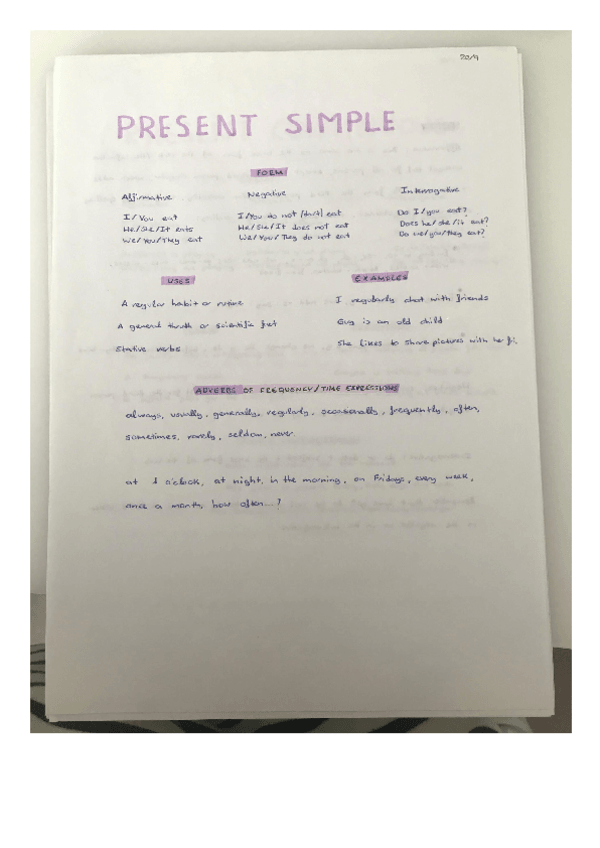 2019
PRESENT SIMPLE
FORM
Affirmative Negative Interrogative
I/You eat I/You do not (don't) eat Do I/you eat?
He/She/It eats He/She/It does not eat Does he/she/it eat?
We/You/They eat We/You/They do not eat Do we/you/they eat?
USES EXAMPLES
A regular habit or routine I regularly chat with friends
A general thruth or scientific fact Guy is an old child
Stative verbs She likes to share pictures with her
ADVERBS OF FREQUENCY/TIME EXPRESSIONS
always, usually, generally, regularly, occasionally, frequently, often,
sometimes, rarely, seldom, never.
at 1 o'clock, at night, in the morning, on Fridays, every week,
once a month, how often...?